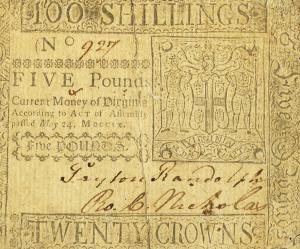 100 SHILLINGS
(No 927
FIVE Pounds
Current Money of Virginia
According to ACT of Assembly
passed May 24, MDCCLX.
Five POUNDS.
Peyton Randolph
Ro. C. Nicholas
TWENTY CROWNS